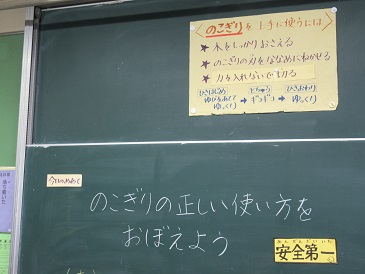 ＜のこぎりを上手に使うには＞
★木をしっかりおさえる
★のこぎりの刃をななめにねかせる
★力を入れないで切る
ひきはじめ とちゅう ひきおわり
ゆっくり → ギコギコ → ゆっくり
今日のめあて
のこぎりの正しい使い方を
おぼえよう
あんぜんだいいち
安全第一